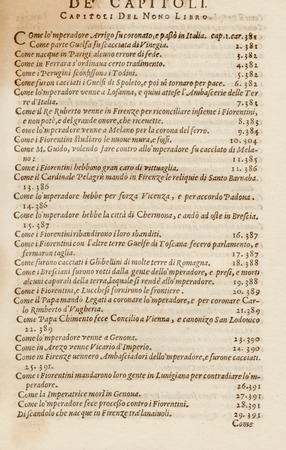 DE' CAPITOLI.
CAPITOLI DEL NONO LIBRO.
COme lo'mperadore Arrigo fu coronato, e passò in Italia. cap.1.car.381
Come parte Guelfa fu scacciata di Vinegia. 2. 381
Come nacque in Parigi alcuno errore di fede. 3. 382
Come in Ferrara s'ordina certo trattimento. 4. 382
Come i Perugini sconfissono i Todini. 5. 382
Come furon cacciati i Guelfi di Spoleto, e poi vi tornaro per pace. 6. 382
Come lo'mperadore venne a Losanna, e quivi attese l'Ambascerie delle Ter
re d'Italia. 7. 383
Come il Re Ruberto venne in Firenze per riconciliare insieme i Fiorentini,
e non potè, e del grande onore, che ricevette. 8. 383
Come lo'mperadore venne a Melano per la corona del ferro. 9. 384
Come i Fiorentini finidiro le nuove mura, e fossi. 10. 304
Come M. Guido, volendo fare contro allo'mperadore fu cacciato di Mela-
no: 11. 385
Come i Fiorentini hebbono gran caro di vittuaglia. 12. 386
Come il Cardinale Pelagrù mandò in Firenze le reliquie di Santo Barnaba.
13. 386
Come lo'mperadore hebbe per forza Vicenza, e per accordo Padova.
14. 386
Come lo'mperadore hebbe la città di Chermona, e andò ad oste in Brescia.
15. 387
Come i Fiorentini ribandirono i loro sbanditi. 16. 387
Come i Fiorentini con l'altre terre Guelfe di Toscana fecero parlamento, e
fermaron taglia. 17. 387
Come furono cacciati i Ghibellini di molte terre di Romagna. 18. 388
Come i Bresciani furono rotti dalla gente dello'mperadore, e presi, e morti
alcuni caporali della terra, laquale si rendè allo'mperadore. 19. 288
Come i Fiorentini, e Lucchesi fornirono le frontiere. 20. 389
Come il Papa mandò Legati a coronare lo'mperadore, e per coronare Car-
lo Rimberto d'Vngheria. 21. 389
Come Papa Chimento fece Concilio a Vienna, e canonizò San Lodouico
22. 389
Come lo'mperadore venne a Genova. 23. 390
Come in Arezo venne Vicario d'Imperio. 24. 390
Come in Firenze uennero Ambasciadori dello'mperadore, e furone cacciati.
25. 391.
Come i Fiorentini mandarono loro gente in Lunigiana per contradiare lo'm-
peradore. 26. 391
Come la Imperatrice morì in Genova. 27. 391
Come lo'mperadore fece processo contro i Fiorentini. 28. 391
Di scandolo che nacque in Firenze tra'lanaiuoli. 29. 391
Come